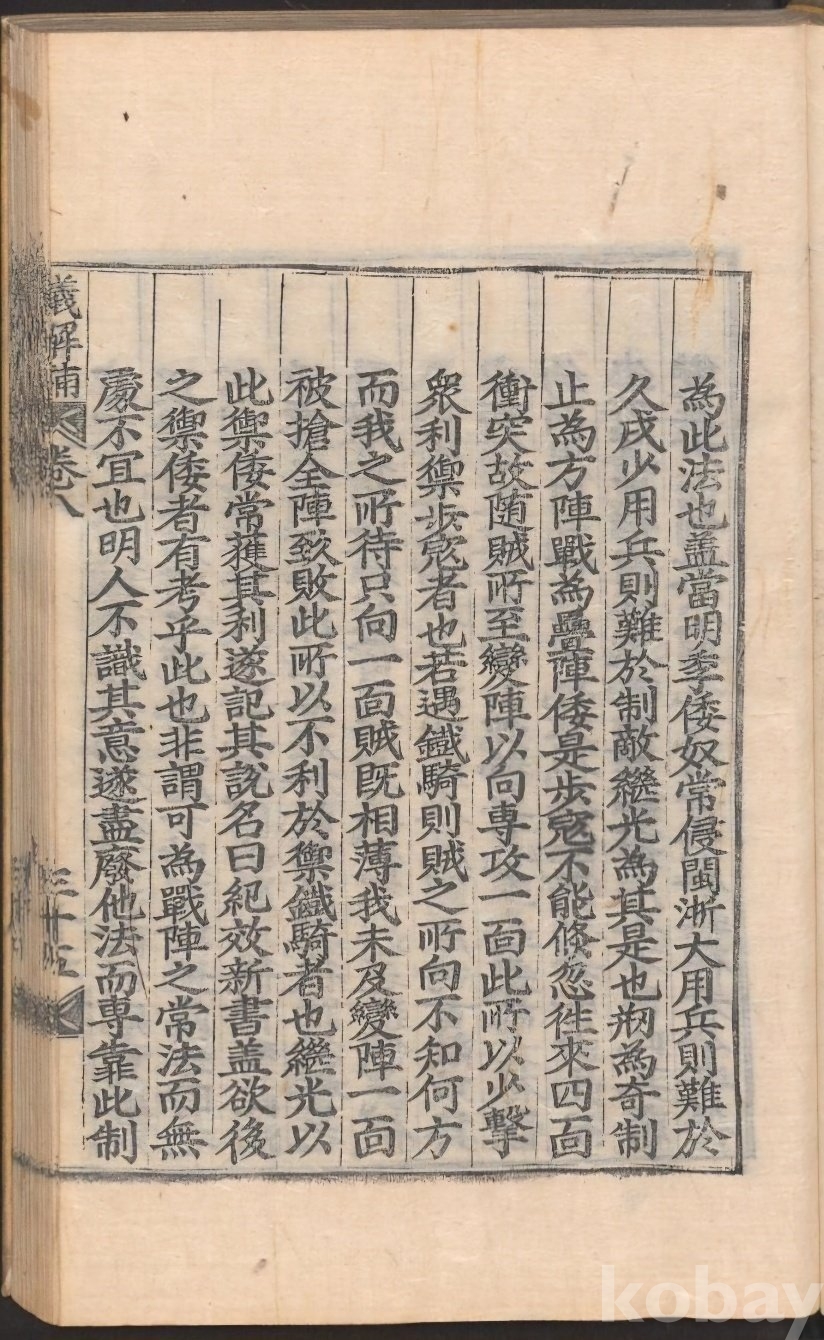 為此法也盖當明季倭奴常侵閩浙大用兵則難於
久戍少用兵則難於制敵繼光為其是也刱為奇制
止為方陣戰為疊陣倭是步寇不能倏忽徃來四面
衝突故随賊所至變陣以向専攻一面此所以少擊
衆利禦步寇者也若遇鐵騎則賊之所向不知何方
而我之所待只向一面賊既相薄我未及變陣一面
被搶全陣致敗此所以不利於禦鐵騎者也繼光以
此禦倭常獲其利遂記其說名曰紀效新書盖欲後
之禦倭者有考乎此也非謂可為戰陣之常法而無
處不宜也明人不識其意遂盡廢他法而専靠此制
議解補 卷八
kobay